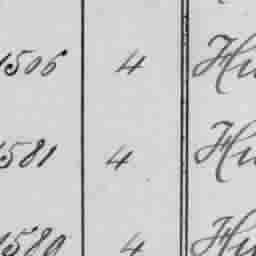 1506 4 Hu
1581 4 Hu
1580 4 Hu